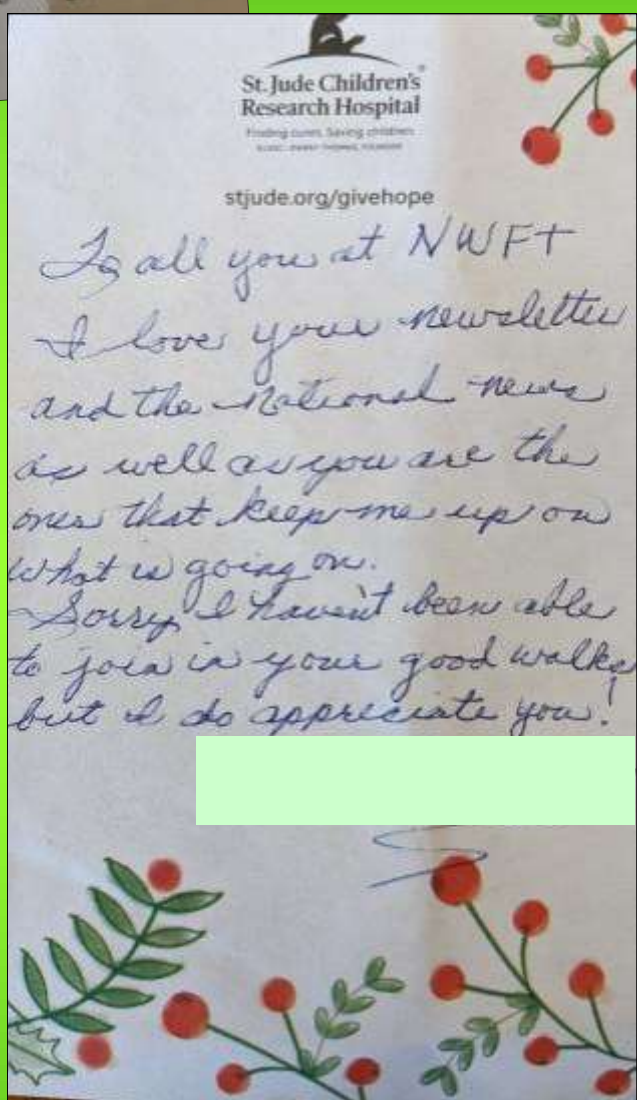 St. Jude Children's
Research Hospital
Finding cures. Saving children.
stjude.org/givehope
To all you at NWFT
I love your newsletter
and the national news
as well as you are the
ones that keep me up on
what is going on.
Sorry I haven't been able
to join in your good walks,
but I do appreciate you!